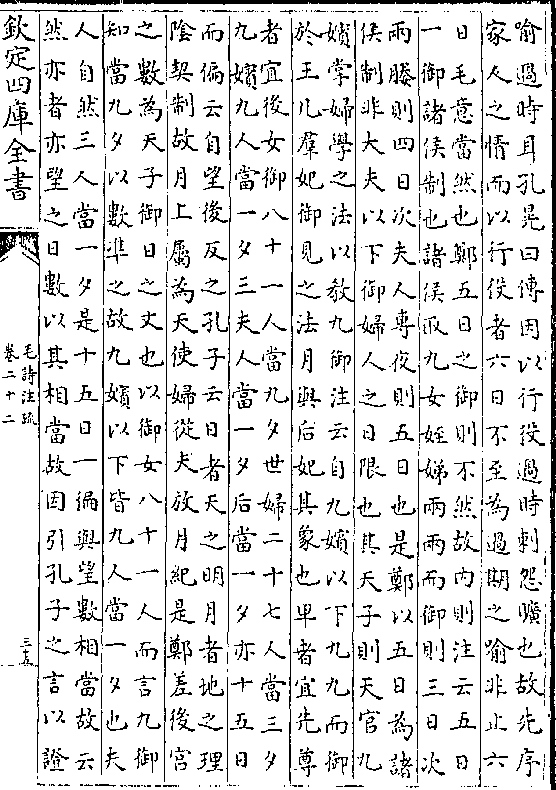 喻過時耳孔晁曰傳因以行役過時刺怨曠也故先序
家人之情而以行役者六日不至為過期之喻非止六
日毛意當然也鄭五日之御則不然故内則注云五日
一御諸侯制也諸侯取九女姪娣兩兩而御則三日次
兩媵則四日次夫人專夜則五日也是鄭以五日為諸
侯制非大夫以下御婦人之日限也其天子則天官九
嬪掌婦學之法以教九御注云自九嬪以下九九而御
於王凡羣妃御見之法月與后妃其象也卑者宜先尊
者宜後女御八十一人當九夕世婦二十七人當三夕
九嬪九人當一夕三夫人當一夕后當一夕亦十五日
而徧云自望後反之孔子云日者天之明月者地之理
陰契制故月上屬為天使婦從夫放月紀是鄭差後宮
之數為天子御日之丈也以御女八十一人而言九御
知當九夕以數準之故九嬪以下皆九人當一夕也夫
人自然三人當一夕是十五日一徧與望數相當故云
然亦者亦望之日數以其相當故因引孔子之言以證
欽定四庫全書
毛詩注疏
卷二十二
三五